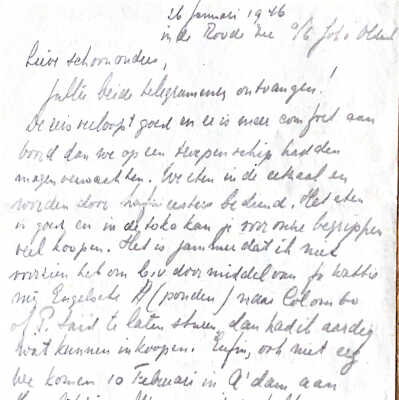 26 Januari 1946
in de Roode Zee o/b Joh. v. Olden
Lieve schoonouders,
Jullie beide telegrammen ontvangen!
De reis verloopt goed en er is meer comfort aan
boord dan we op een troepenschip hadden
mogen verwachten. We eten in de eetzaal en
worden door bediend. Het eten
is goed en in de toko kan je voor onze begrippen
veel koopen. Het is jammer dat ik niet
voorzien heb om b.v. door middel van Jo Wattie
mij Engelsche (ponden) naar Colombo
of P. Said te laten sturen, dan had ik aardig
wat kunnen inkoopen. Enfin, ook niet erg
we komen 10 Februari in A'dam aan